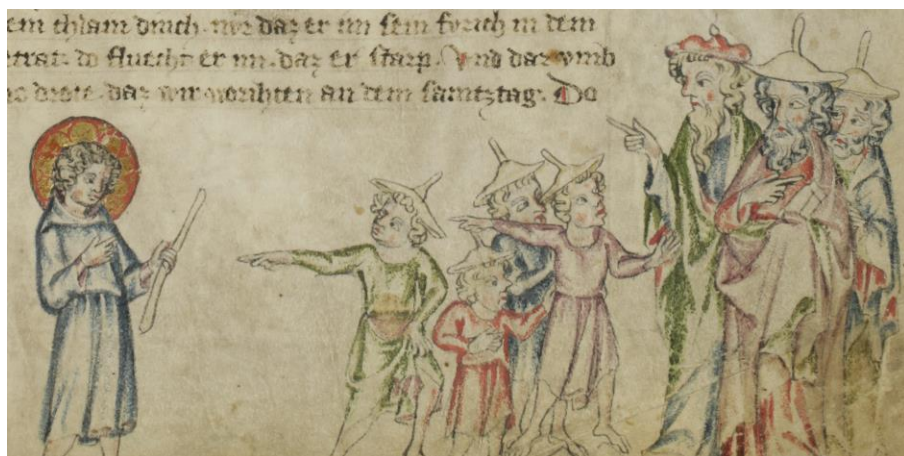 em chlain dinch. nvr daz er im sein fvrich in dem
trat. do fluecht er im. daz er starp. Vnd dar vmb
daz wir worihten an dem samtztag. Do